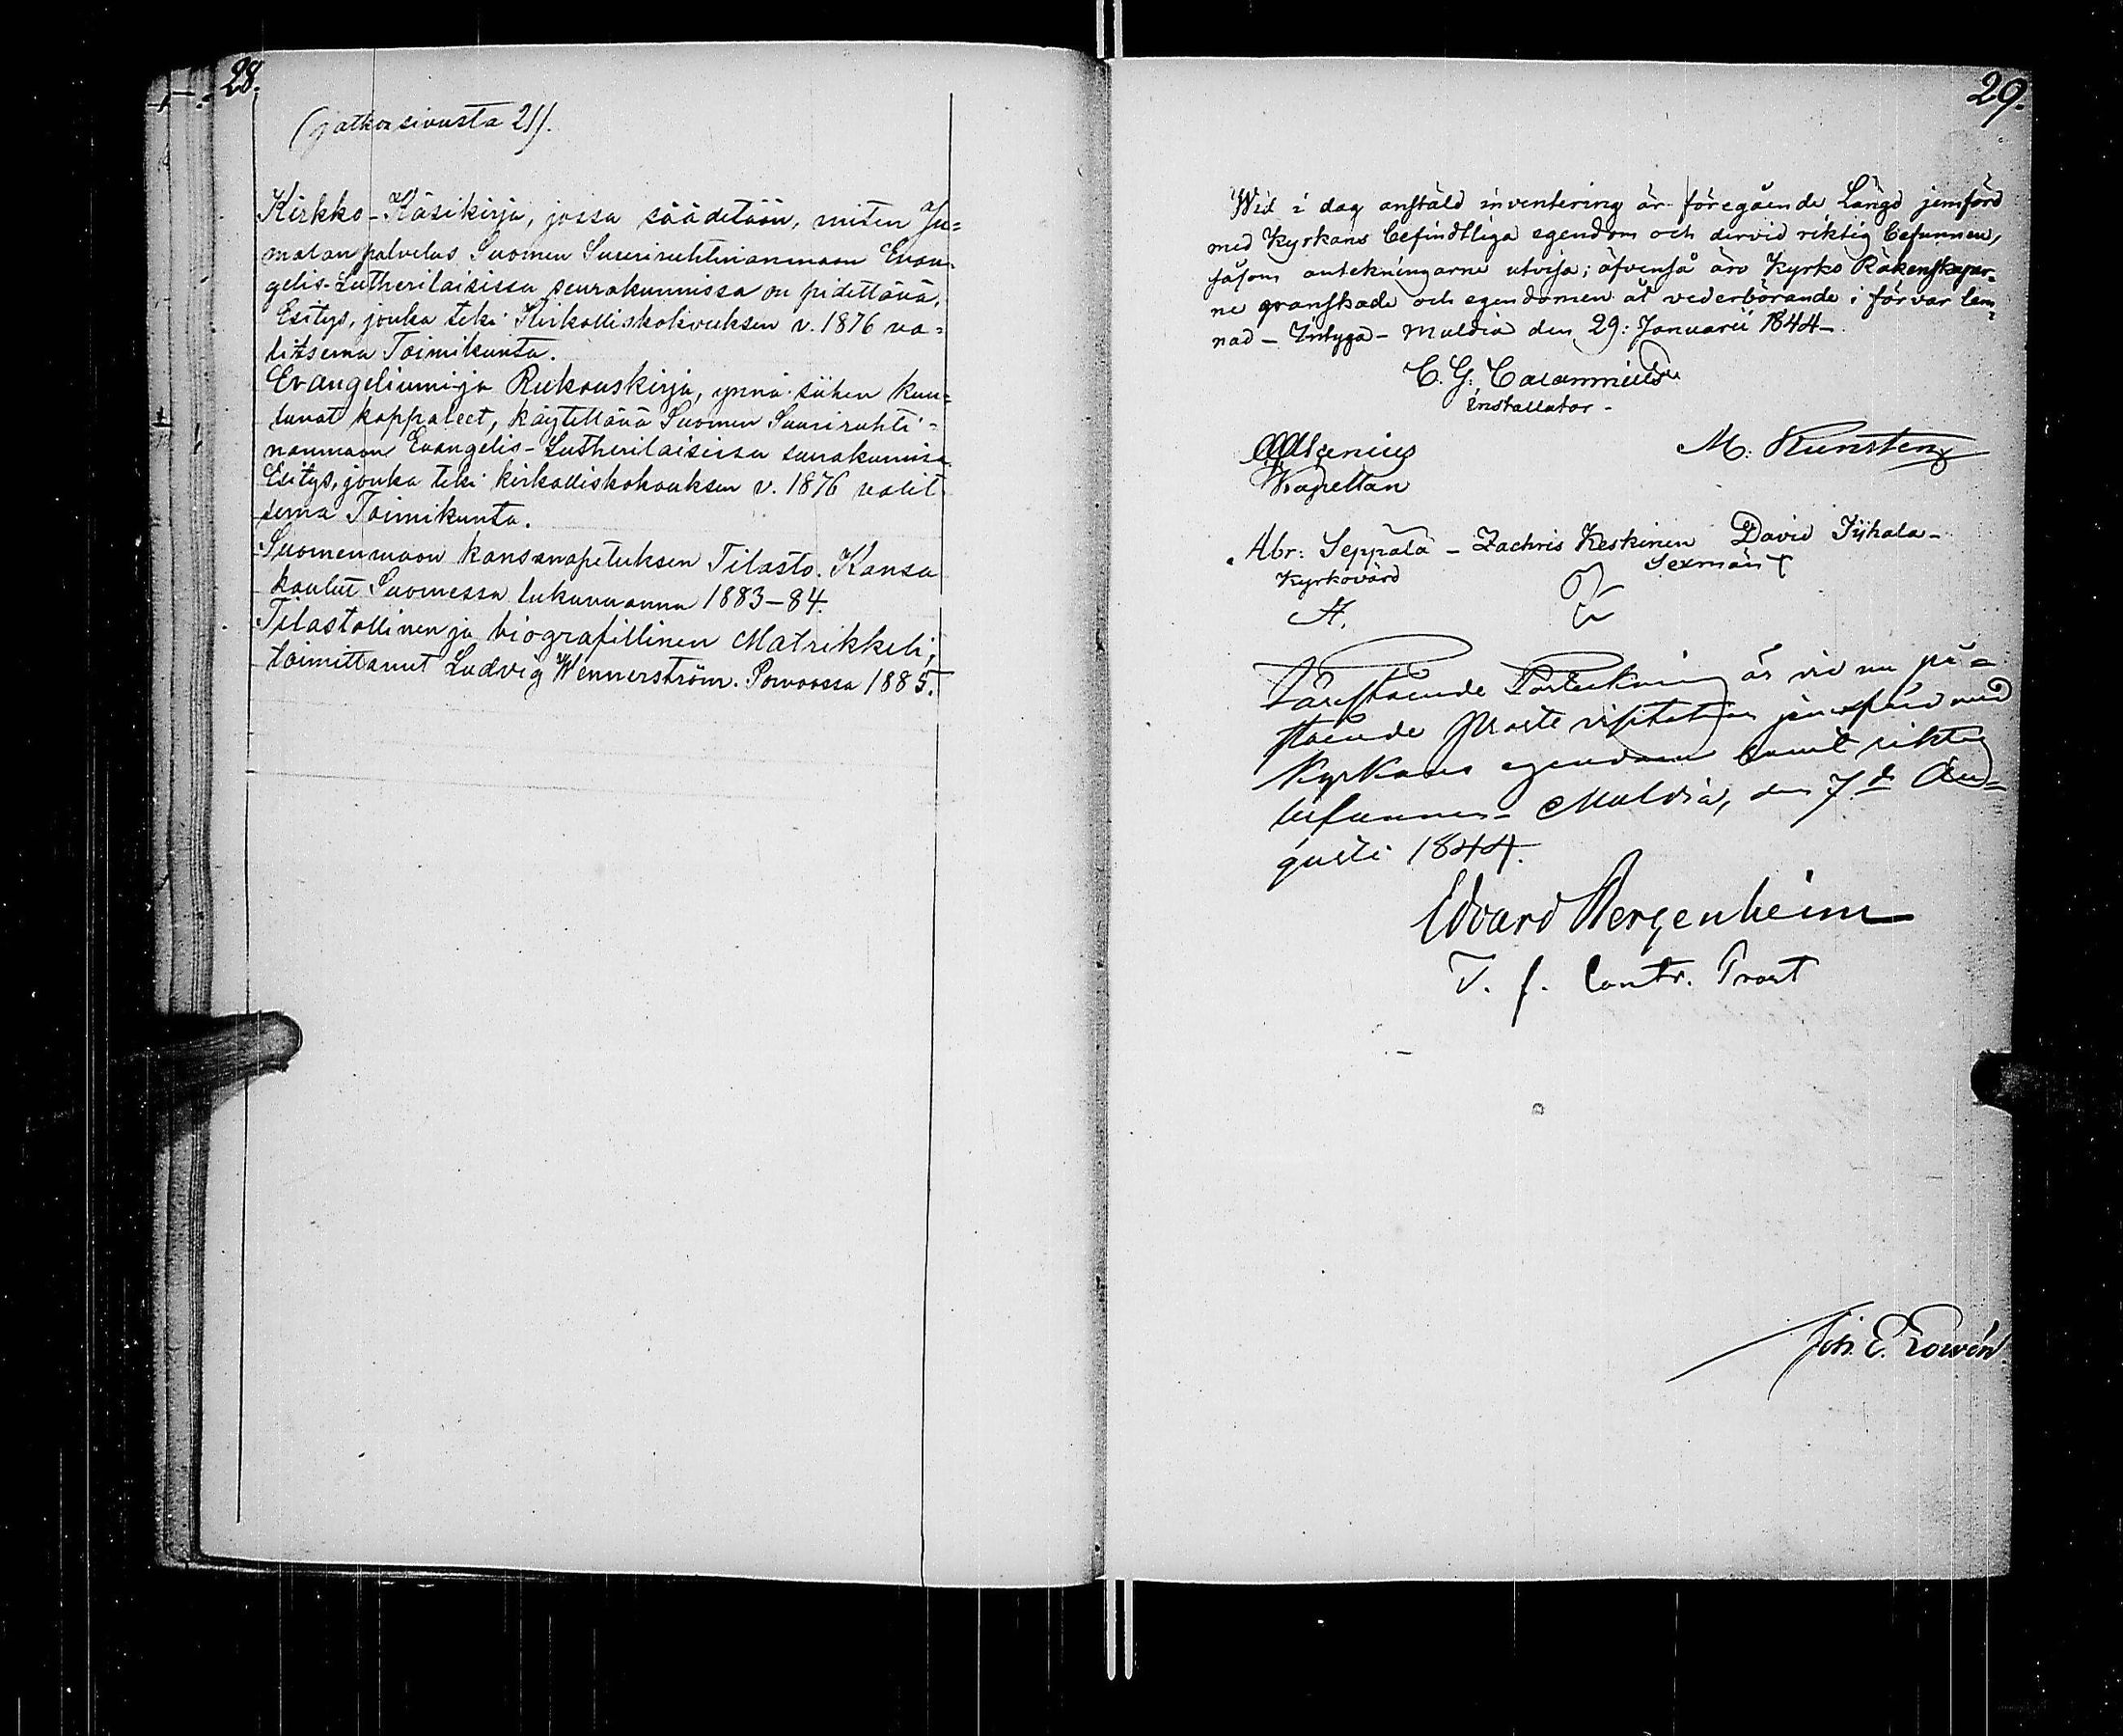 28.
(jatkoa sivusta 21).
Kirkko-Käsikirja, jossa säädetään, miten Ju=
malanpalvelus Suomen Suuriruhtinanmaan Evan-
gelis-Lutherilaisissa seurakunnissa on pidettävä,
Esitys, jonka teki Kirkolliskokouksen v. 1876 va=
litsema Toimikunta.
Evangeliumi-ja Rukouskirja, ynnä siihen kuu=
luvat kappaleet, käytettävä Suomen Suuriruhti=
nanmaan Evangelis-Lutherilaisissa seurakunnissa
Esitys, jonka teki kirkolliskokouksen v. 1876 valit
sema Toimikunta.
Suomenmaan kansanopetuksen Tilasto. Kansa
koulut Suomessa lukuvuonna 1883-84.
Tilastollinen ja biografillinen Matrikkeli,
toimittanut Ludvig Wennerström. Porvoossa 1885.
29.
Wid i dag anstäld inventering är föregående Längd jemförd
med Kyrkans befindtliga egendom och dervid riktig befunnen,
såsom antekningarne utvisa; äfvenså äro Kyrko Räkenskaper=
ne granskade och egendomen åt vederbörande i förvar lem=
nad - Intyga - Muldia den 29: Januarii 1844-
C. G.
installator -
Kapellan
M. Kunsten
Abr: Seppälä - Zachris Keskinen David Tyhala-
Kyrkovärd
Sexmän
Förestående Förteckning är vid nu på=
stående Proste visitation jemförd med
Kyrkans egendom samt riktig
befunnen - Muldia, den 7de Au=
gusti 1844.
Edvard Bergenheim
T. f. Contr. Prost
Joh. E.